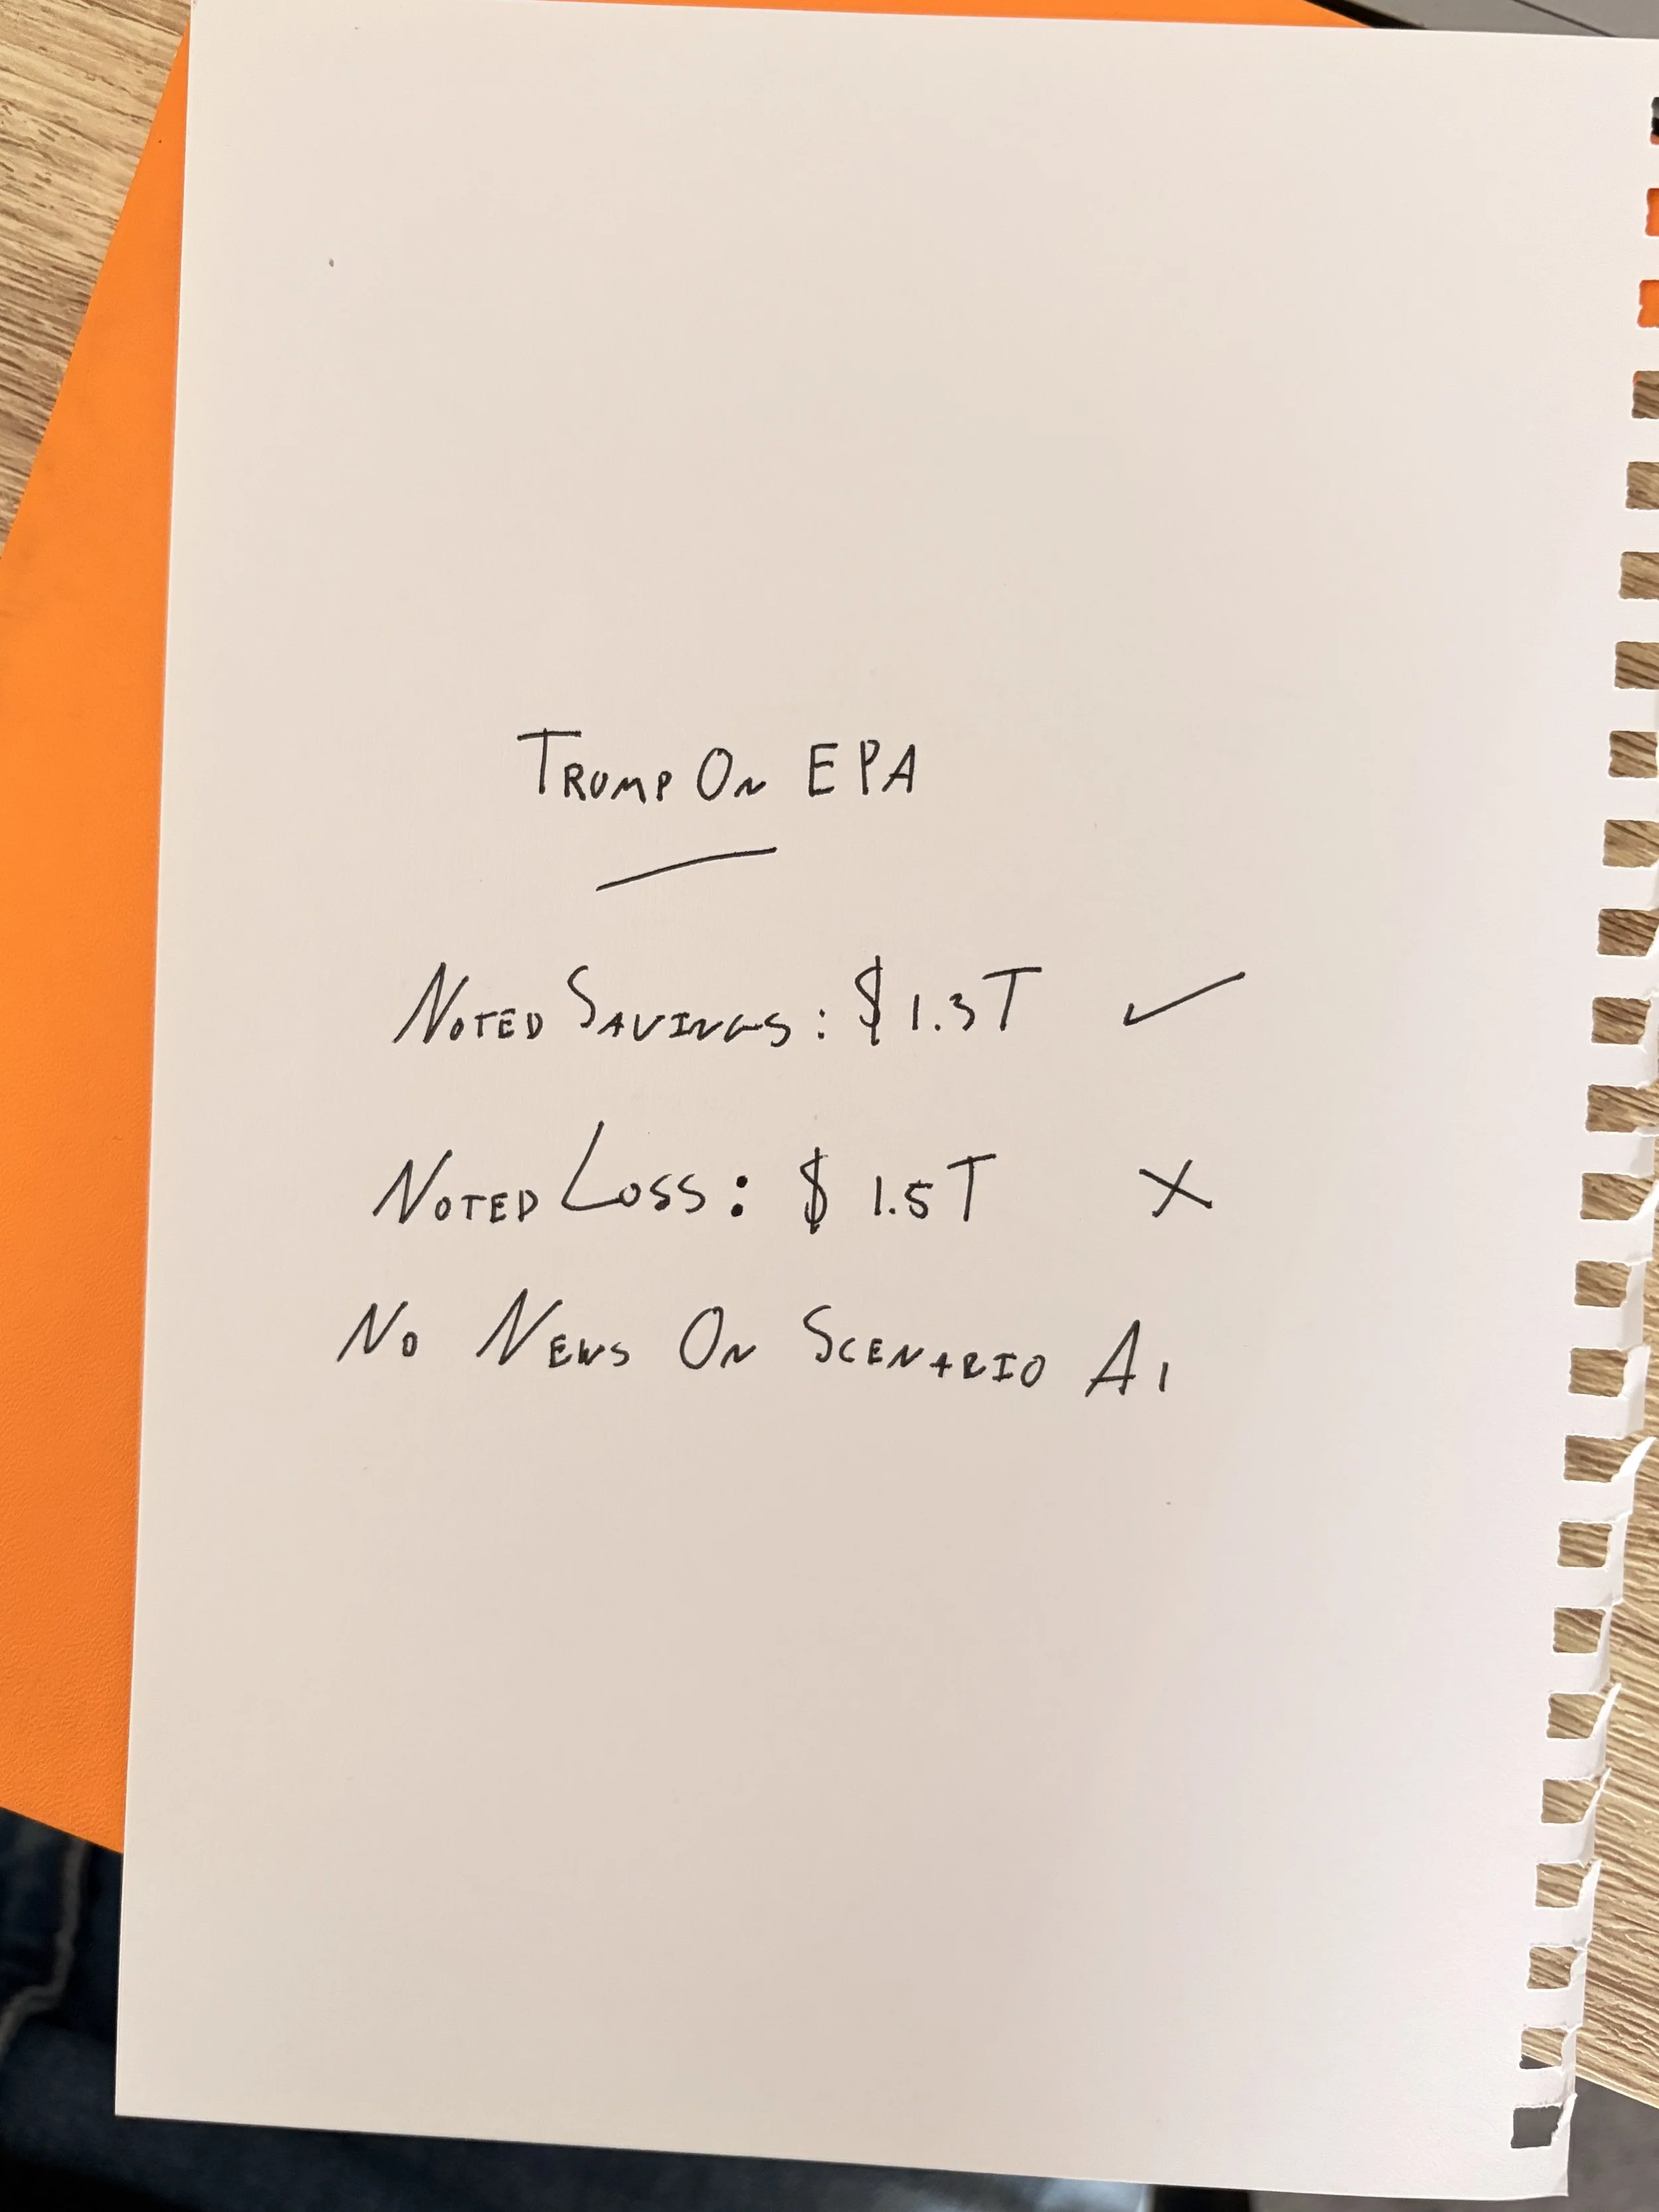 TRUMP ON EPA
NOTED SAVINGS: $1.3T ✓
NOTED LOSS: $1.5T X
NO NEWS ON SCENARIO A1